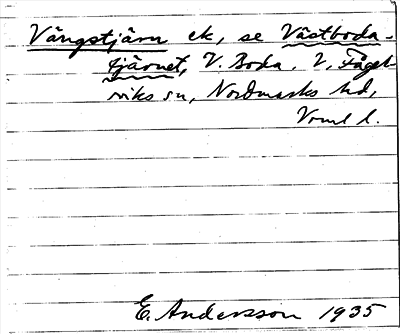 Vängstjärn ek, se Västboda-
tjärnet, V. Boda, V. Fågel-
viks sn, Nordmarks hd,
Vrml l.
E. Andersson 1935